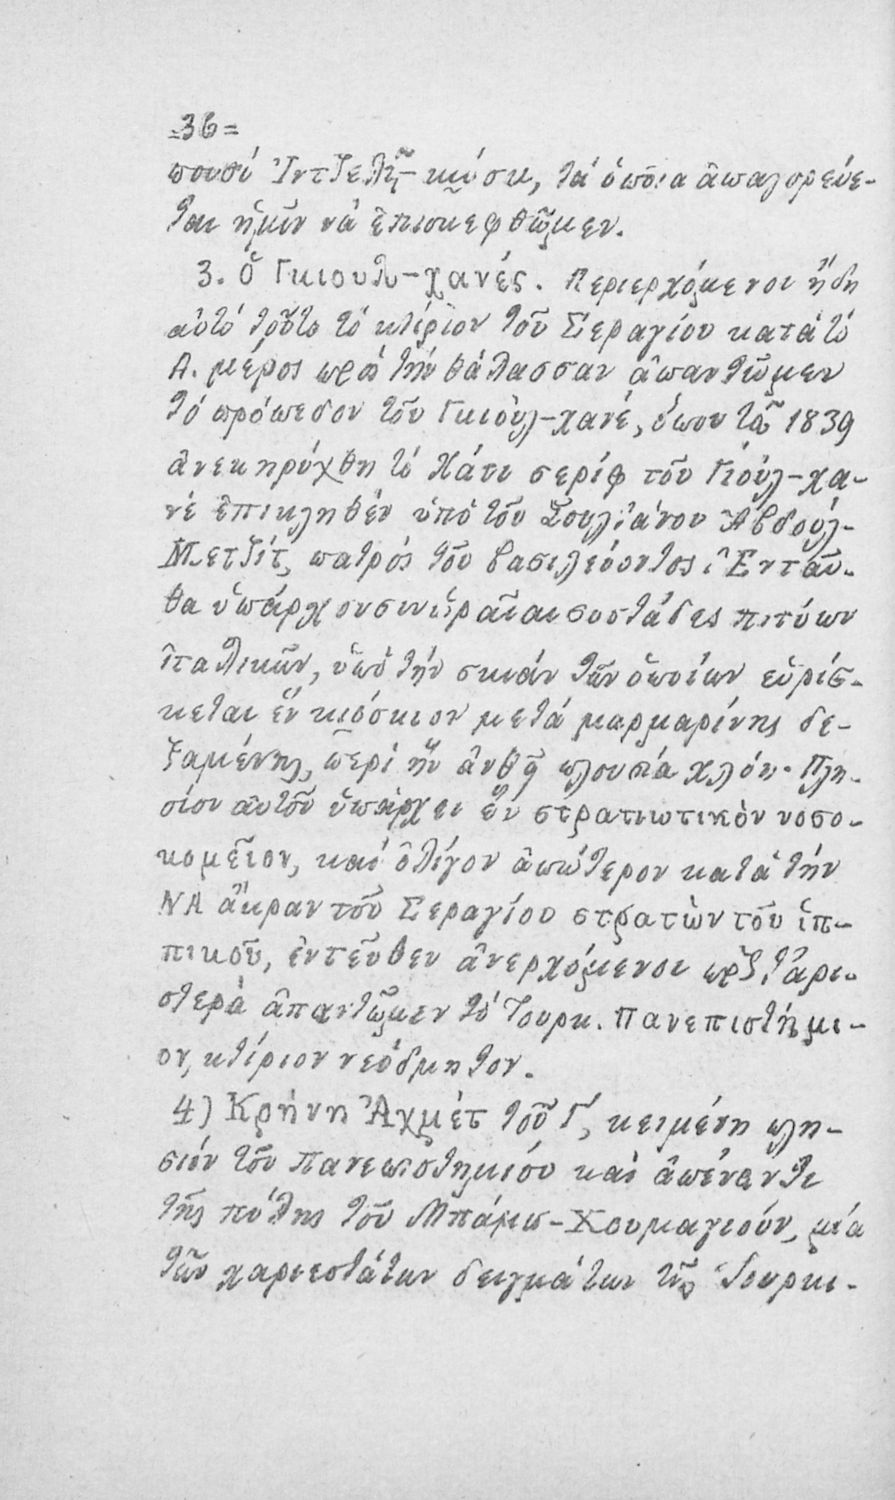 =36=
πουσὺ Ἰντζελῆ-κιόσκ, τὰ ὁποῖα ἀπαγορεύε-
ται ἡμῖν νὰ ἐπισκεφθῶμεν.
3. Ὁ Γκιουλ-χανές. Περιερχόμενοι ἤδη
αὐτὸ τοῦτο τὸ κτίριον τοῦ Σεραγίου κατὰ τὸ
Α. μέρος πρὸς τὴν θάλασσαν ἀπαντῶμεν
τὸ πρόπεδον τοῦ Γκιοὺλ-χανέ, ὅπου τῷ 1839
ἀνεκηρύχθη τὸ Χάτι σερίφ τοῦ Γιοὺλ-χα-
νὲ ἐπικληθὲν ὑπὸ τοῦ Σουλτάνου Ἀβδούλ-
Μετζίτ, πατρὸς τοῦ βασιλεύοντος. Ἐνταῦ-
θα ὑπάρχουσιν ὡραῖαι συστάδες πιτύων
ἰταλικῶν, ὑπὸ τὴν σκιὰν τῶν ὁποίων εὑρίσ-
κεται ἓν κιόσκιον μετὰ μαρμαρίνης δε-
ξαμένης, περὶ ἣν ἀνθεῖ πλουσία χλόη. Πλη-
σίον αὐτοῦ ὑπάρχει ἓν στρατιωτικὸν νοσο-
κομεῖον, καὶ ὀλίγον ἀπώτερον κατὰ τὴν
ΝΑ ἄκραν τοῦ Σεραγίου στρατὼν τοῦ ἱπ-
πικοῦ, ἐντεῦθεν ἀνερχόμενοι πρὸς τἀρι-
στερὰ ἀπαντῶμεν τὸ Τουρκ. Πανεπιστήμι-
ον, κτίριον νεόδμητον.
4) Κρήνη Ἀχμὲτ τοῦ Γ, κειμένη πλη-
σιόν τοῦ Πανεπιστημίου καὶ ἀπέναντι
τῆς πύλης τοῦ Μπάμπ-Χουμαγιούν, μία
τῶν χαριεστάτων δειγμάτων τῆς Τουρκι-